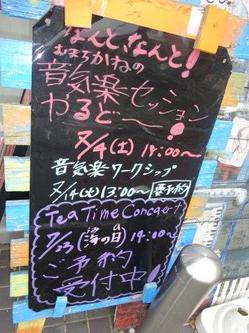 なんと、なんと!
むまろかねの
音気楽セッション
やるど〜!
7/4(土) 18:00〜
音気楽ワークショップ
7/14(火)13:00〜 要予約
Tea Time Concert
7/23(海の日)14:00〜
ご予約
受付中!